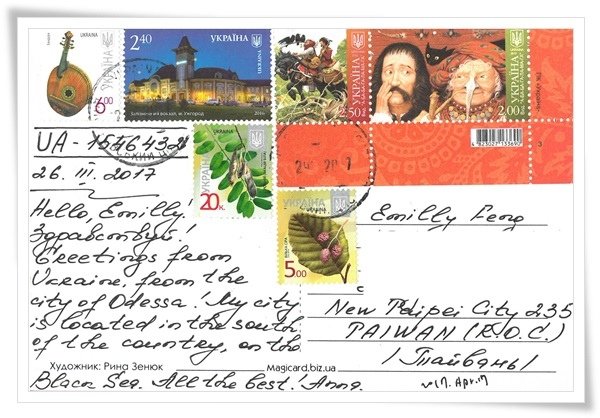 УКРАЇНА
UKRAINE
6.00
2.40 УКРАЇНА
Залізничний вокзал, м. Ужгород
УКРАЇНА
2.50
УКРАЇНА
2.00
УКРАЇНА
UKRAINE
20 к.
УКРАЇНА
UKRAINE
5.00
UA-1546432
26. III. 2017
Hello, Emilly!
Здравствуй!
Greetings from
Ukraine, from the
city of Odessa! My city
is located in the south
of the country, on the
Black Sea. All the best! Anna.
Художник: Рина Зенюк
Magicard.biz.ua
Emilly Feng
New Taipei City 235
TAIWAN (R.O.C.)
/Тайвань/
2017. Apr. 17